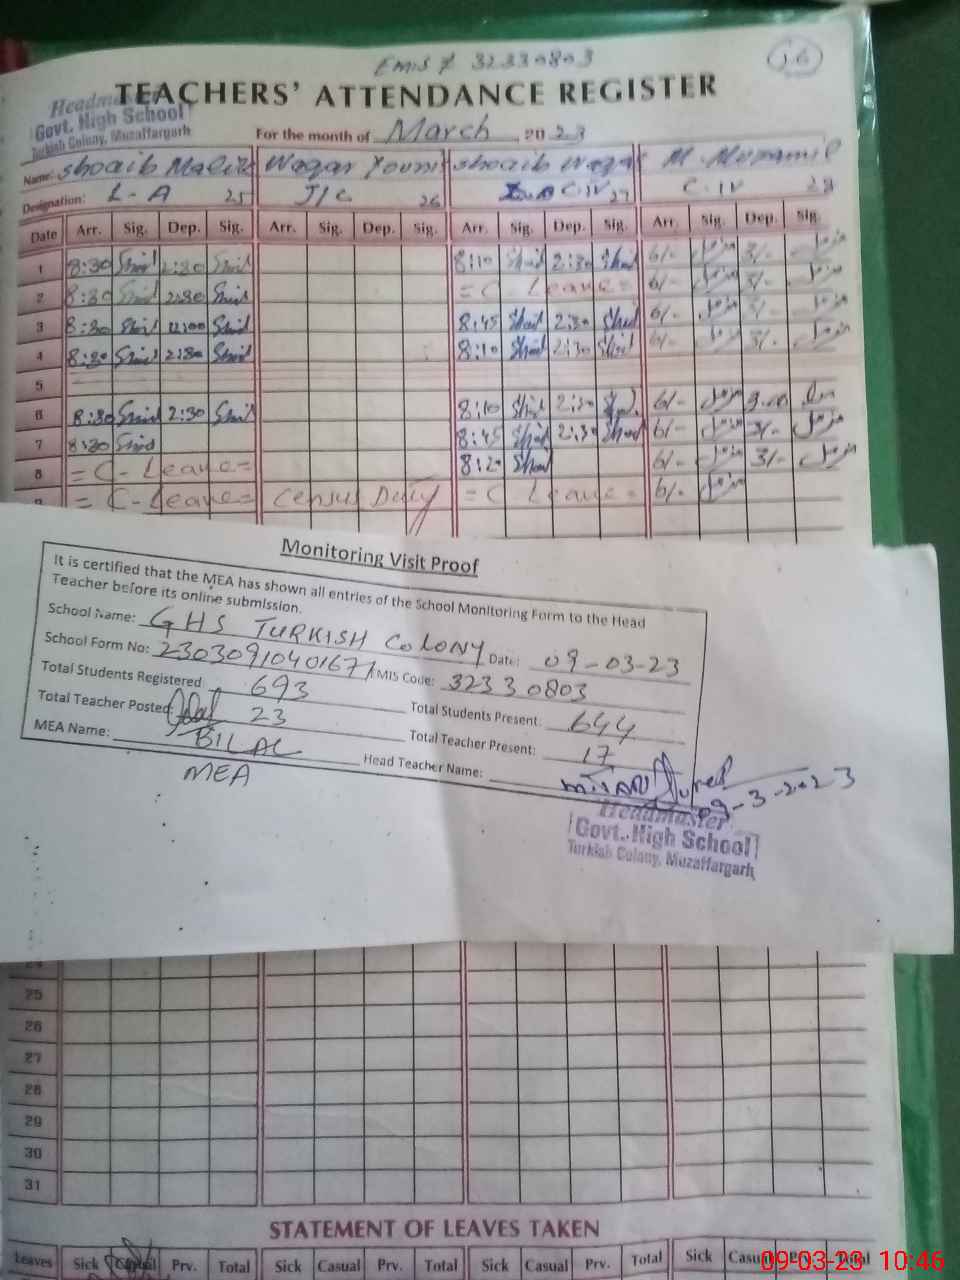 EMIS # 32330803
TEACHERS' ATTENDANCE REGISTER
Headmaster
Govt. High School
Turkish Colony, Muzaffargarh
For the month of March 2023
Name: Shoaib Malik Waqar Younis Shoaib Waqar M. Muzamil
Designation: L-A 25 J/C 26 C.IV 27 C.IV 28
Date Arr. Sig. Dep. Sig. Arr. Sig. Dep. Sig. Arr. Sig. Dep. Sig. Arr. Sig. Dep. Sig.
1 8:30 2:30 8:10 2:30 6/- مزمل 3/- مزمل
2 8:30 2:30 = C. Leave = 6/- مزمل 3/- مزمل
3 8:30 12:00 8:45 2:30 6/- مزمل 3/- مزمل
4 8:30 2:30 8:10 2:30 6/- مزمل 3/- مزمل
5
6 8:30 2:30 8:10 2:30 6/- مزمل 3:00
7 8:30 8:45 2:30 6/- مزمل 3/- مزمل
8 = C-Leave = 8:20 6/- مزمل 3/- مزمل
9 = C-Leave = Census Duty = C Leave = 6/- مزمل
Monitoring Visit Proof
It is certified that the MEA has shown all entries of the School Monitoring Form to the Head
Teacher before its online submission.
School Name: GHS TURKISH COLONY Date: 09-03-23
School Form No: 2303091040167 EMIS Code: 32330803
Total Students Registered: 693 Total Students Present: 644
Total Teacher Posted: 23 Total Teacher Present: 17
MEA Name: BILAL Head Teacher Name:
MEA
09-3-2023
Headmaster
Govt. High School
Turkish Colony, Muzaffargarh
24
25
26
27
28
29
30
31
STATEMENT OF LEAVES TAKEN
Leaves Sick Casual Prv. Total Sick Casual Prv. Total Sick Casual Prv. Total Sick Casual Prv. Total
09-03-23 10:46